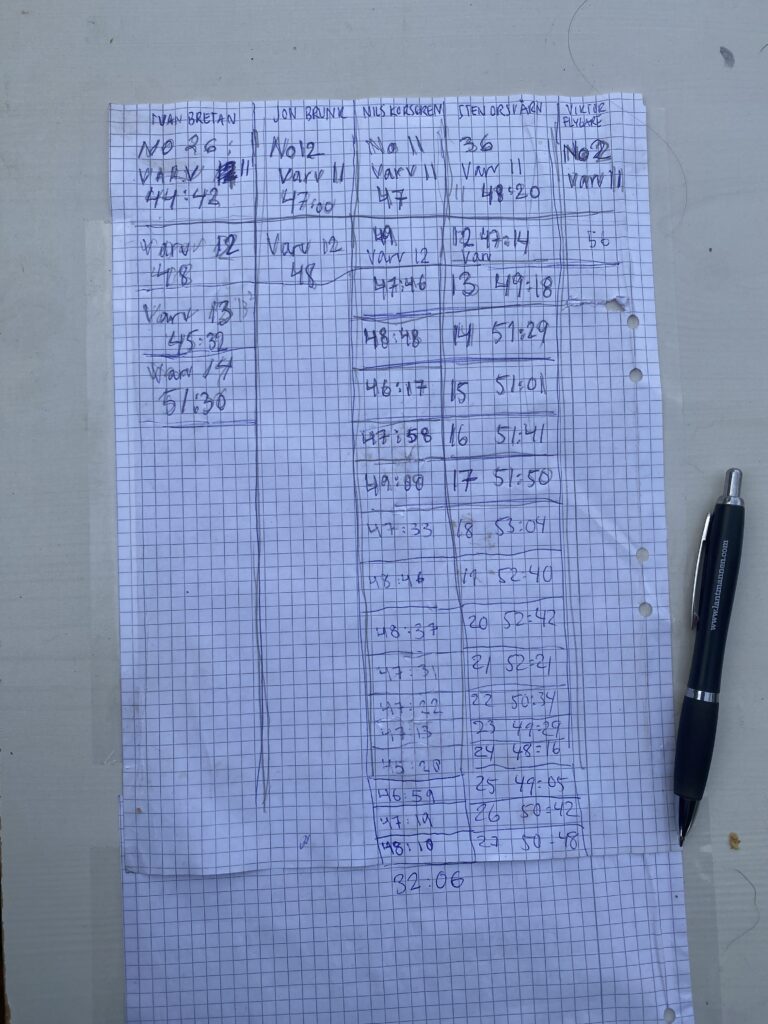 IVAN BRETAN
NO 26:
VARV 11
44:42
Varv 12
48
Varv 13
45:32
Varv 14
51:30
JON BRUNK
No12
Varv 11
47:00
Varv 12
48
NILS KORSGREN
No 11
Varv 11
47
Varv 12
47:46
48:48
46:17
47:58
49:00
47:33
48:46
48:37
47:31
47:22
47:13
45:28
46:59
47:19
48:10
32:06
STEN ORSVÄRN
36
Varv 11
48:20
12 47:14
Varv
13 49:18
14 51:29
15 51:01
16 51:41
17 51:50
18 53:04
19 52:40
20 52:42
21 52:21
22 50:34
23 49:29
24 48:16
25 49:05
26 50:42
27 50:48
VIKTOR
No 2
Varv 11
56
www.lantmannen.com